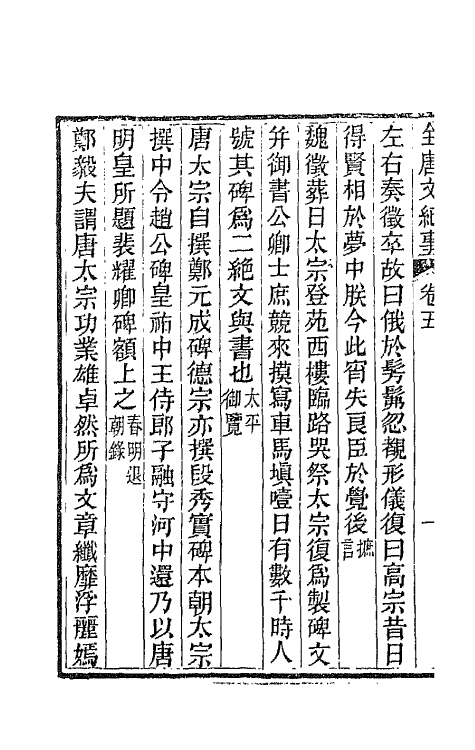 全唐文紀事 卷五
一
左右奏徵卒故曰俄於髣髴忽覩形儀復曰高宗昔日
得賢相於夢中朕今此宵失良臣於覺後摭言
魏徵葬日太宗登苑西樓臨路哭祭太宗復爲製碑文
幷御書公卿士庶競來摸寫車馬塡噎日有數千時人
號其碑爲二絶文與書也太平御覽
唐太宗自撰鄭元成碑德宗亦撰段秀實碑本朝太宗
撰中令趙公碑皇祐中王侍郎子融守河中還乃以唐
明皇所題裴耀卿碑額上之春明退朝錄
鄭毅夫謂唐太宗功業雄卓然所爲文章纖靡浮麗嫣